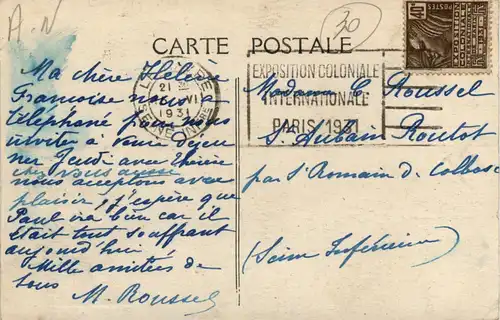 A.N
30
CARTE POSTALE
POSTES
21
VI
1931
SEINE INF
EXPOSITION COLONIALE
INTERNATIONALE
PARIS 1931
Ma chère Hélène
Françoise nous a
téléphoné pour nous
inviter à venir déjeu
ner Jeudi avec
chez vous aussi
nous acceptons avec
plaisir, j'espère que
Paul ira bien car il
était tout souffrant
aujourd'hui
Mille amitiés de
tous
M. Roussel
Madame C. Roussel
St Aubain Routot
par St Romain de Colbosc
(Seine Inférieure)